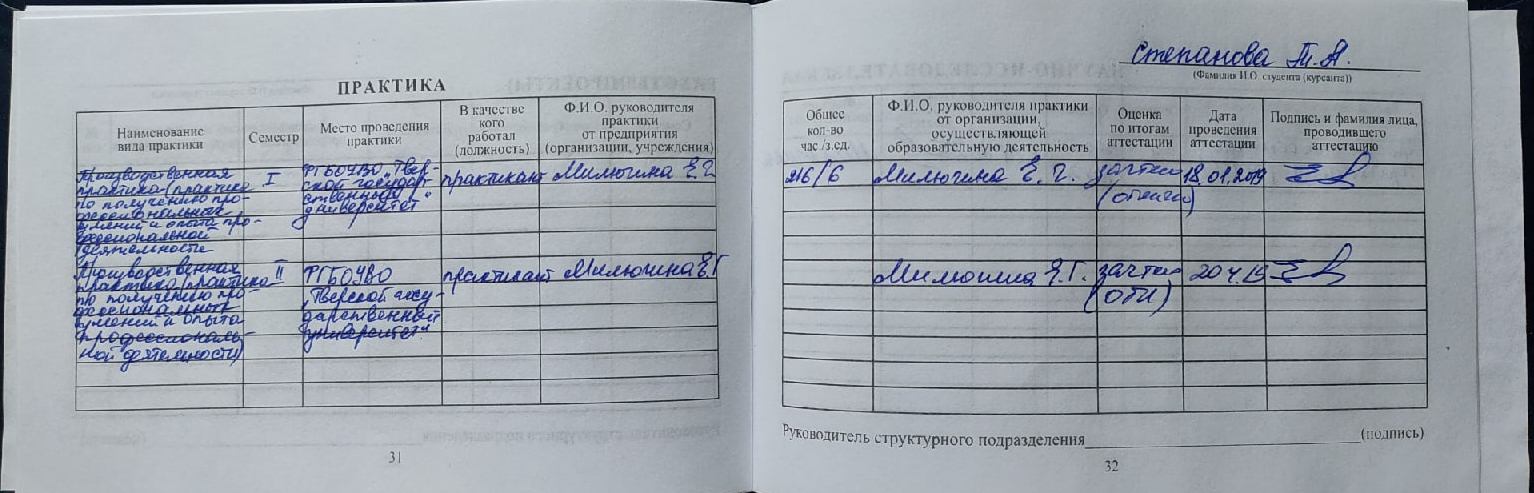 ПРАКТИКА
Наименование
вида практики
Семестр
Место проведения
практики
В качестве
кого
работал
(должность)
Ф.И.О. руководителя
практики
от предприятия
(организации, учреждения)
Производственная
практика (практика
по получению про-
фессиональных
умений и опыта про-
фессиональной
деятельности
I
ФГБОУВО "Твер-
ской государ-
ственный
университет"
практикант
Милюгина Е.Г
Производственная
практика (практика
по получению про-
фессиональных
умений и опыта
професcиональ-
ной деятельности)
II
ФГБОУВО
"Тверской госу-
дарственный
университет"
практикант
Милюгина Е.Г
31
Степанова Т.А.
(Фамилия И.О. студента (курсанта))
Общее
кол-во
час./з.ед.
Ф.И.О. руководителя практики
от организации,
осуществляющей
образовательную деятельность
Оценка
по итогам
аттестации
Дата
проведения
аттестации
Подпись и фамилия лица,
проводившего
аттестацию
216/6
Милюгина Е.Г.
зачтено
(отлично)
18.01.2019
Милюгина Е.Г.
зачтено
(отл)
20 4 19
Руководитель структурного подразделения (подпись)
32